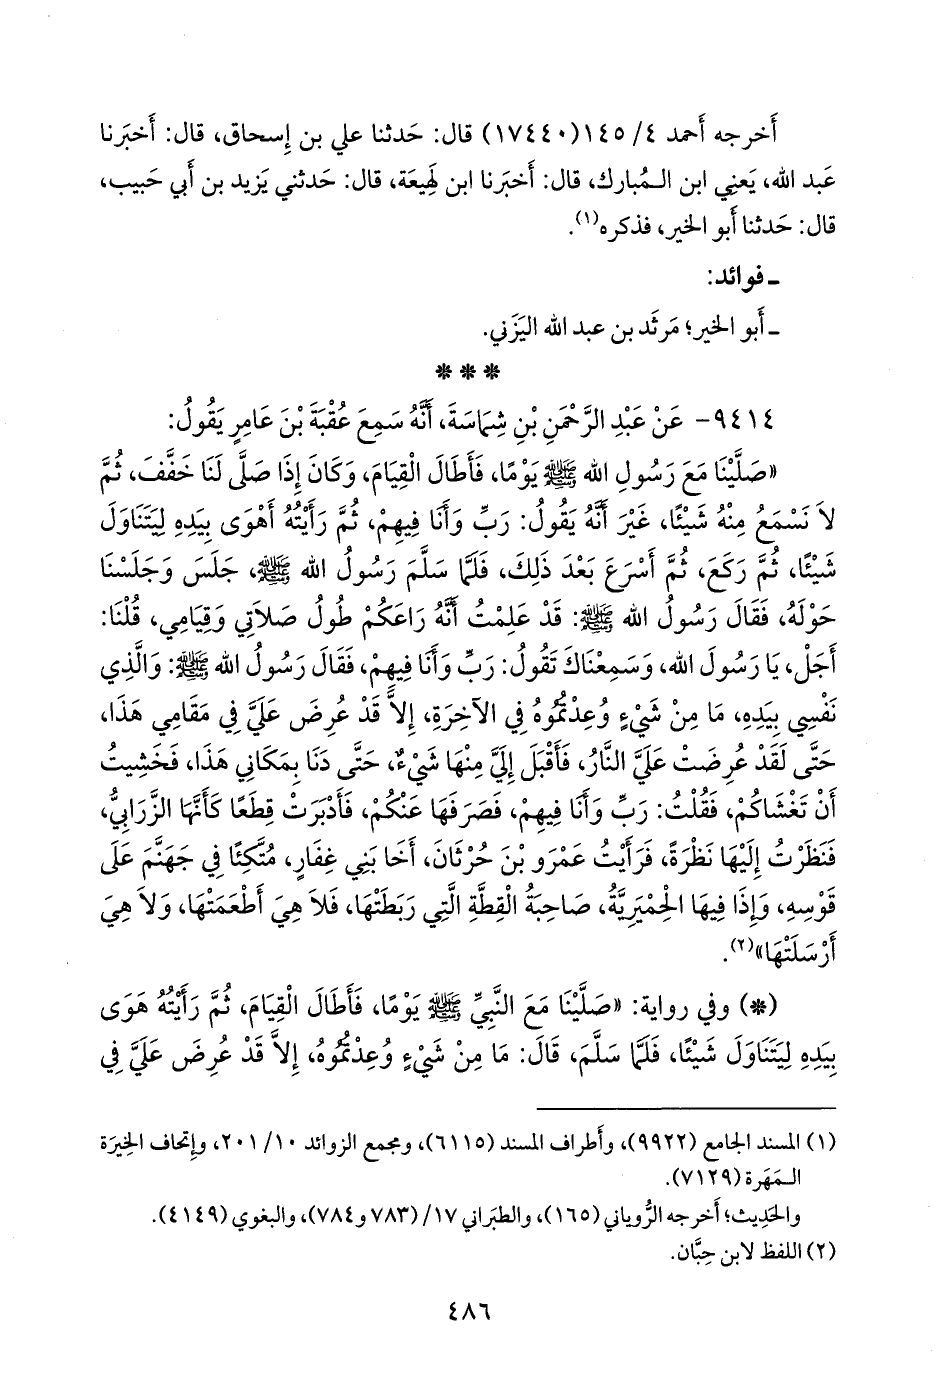 أَخرجه أَحمد ٤/ ١٤٥(١٧٤٤٠) قال: حَدثنا علي بن إِسحاق، قال: أَخبَرنا
عَبد الله، يَعني ابن الـمُبارك، قال: أَخبَرنا ابن لَهِيعَة، قال: حَدثني يَزيد بن أَبي حَبيب،
قال: حَدثنا أَبو الخير، فذكره(١).
ـ فوائد:
ـ أَبو الخير؛ مَرثَد بن عبد الله اليَزَني.
* * *
٩٤١٤- عَنْ عَبْدِ الرَّحْمَنِ بْنِ شِمَاسَةَ، أَنَّهُ سَمِعَ عُقْبَةَ بْنَ عَامِرٍ يَقُولُ:
«صَلَّيْنَا مَعَ رَسُولِ الله ﷺ يَوْمًا، فَأَطَالَ الْقِيَامَ، وَكَانَ إِذَا صَلَّى لَنَا خَفَّفَ، ثُمَّ
لاَ نَسْمَعُ مِنْهُ شَيْئًا، غَيْرَ أَنَّهُ يَقُولُ: رَبِّ وَأَنَا فِيهِمْ، ثُمَّ رَأَيْتُهُ أَهْوَى بِيَدِهِ لِيَتَنَاوَلَ
شَيْئًا، ثُمَّ رَكَعَ، ثُمَّ أَسْرَعَ بَعْدَ ذَلِكَ، فَلَمَّا سَلَّمَ رَسُولُ الله ﷺ، جَلَسَ وَجَلَسْنَا
حَوْلَهُ، فَقَالَ رَسُولُ الله ﷺ: قَدْ عَلِمْتُ أَنَّهُ رَاعَكُمْ طُولُ صَلاَتِي وَقِيَامِي، قُلْنَا:
أَجَلْ، يَا رَسُولَ الله، وَسَمِعْنَاكَ تَقُولُ: رَبِّ وَأَنَا فِيهِمْ، فَقَالَ رَسُولُ الله ﷺ: وَالَّذِي
نَفْسِي بِيَدِهِ، مَا مِنْ شَيْءٍ وُعِدْتُمُوهُ فِي الآخِرَةِ، إِلاَّ قَدْ عُرِضَ عَلَيَّ فِي مَقَامِي هَذَا،
حَتَّى لَقَدْ عُرِضَتْ عَلَيَّ النَّارُ، فَأَقْبَلَ إِلَيَّ مِنْهَا شَيْءٌ، حَتَّى دَنَا بِمَكَانِي هَذَا، فَخَشِيتُ
أَنْ تَغْشَاكُمْ، فَقُلْتُ: رَبِّ وَأَنَا فِيهِمْ، فَصَرَفَهَا عَنْكُمْ، فَأَدْبَرَتْ قِطَعًا كَأَنَّهَا الزَّرَابِيُّ،
فَنَظَرْتُ إِلَيْهَا نَظْرَةً، فَرَأَيْتُ عَمْرَو بْنَ حُرْثَانَ، أَخَا بَنِي غِفَارٍ، مُتَّكِئًا فِي جَهَنَّمَ عَلَى
قَوْسِهِ، وَإِذَا فِيهَا الْحِمْيَرِيَّةُ، صَاحِبَةُ الْقِطَّةِ الَّتِي رَبَطَتْهَا، فَلاَ هِيَ أَطْعَمَتْهَا، وَلاَ هِيَ
أَرْسَلَتْهَا»(٢).
(*) وفي رواية: «صَلَّيْنَا مَعَ النَّبِيِّ ﷺ يَوْمًا، فَأَطَالَ الْقِيَامَ، ثُمَّ رَأَيْتُهُ هَوَى
بِيَدِهِ لِيَتَنَاوَلَ شَيْئًا، فَلَمَّا سَلَّمَ، قَالَ: مَا مِنْ شَيْءٍ وُعِدْتُمُوهُ، إِلاَّ قَدْ عُرِضَ عَلَيَّ فِي
(١) المسند الجامع (٩٩٢٢)، وأَطراف المسند (٦١١٥)، ومجمع الزوائد ١٠/ ٢٠١، وإِتحاف الخِيرَة
الـمَهَرة (٧١٢٩).
والحَدِيث؛ أَخرجه الرُّوياني (١٦٥)، والطبَراني ١٧/ (٧٨٣ و٧٨٤)، والبغوي (٤١٤٩).
(٢) اللفظ لابن حِبَّان.
٤٨٦